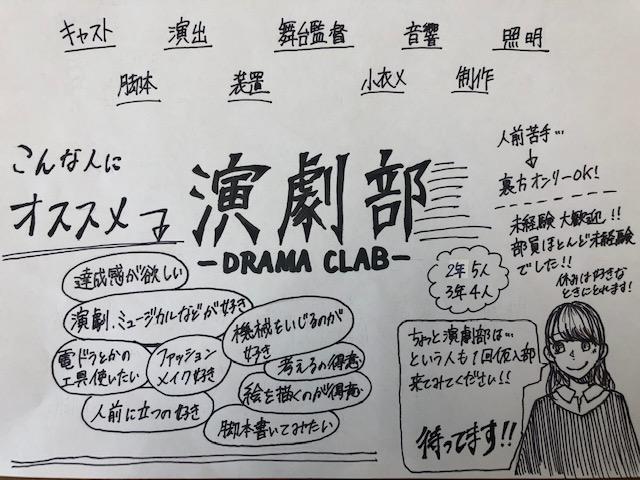 キャスト 演出 舞台監督 音響 照明
脚本 装置 小衣メ 制作
こんな人に
オススメ
演劇部
-DRAMA CLAB-
人前苦手…
↓
裏方オンリーOK!
未経験大歓迎!!
部員ほとんど未経験
でした!!
休みは好きな
ときにとれます!
2年5人
3年4人
達成感が欲しい
演劇.ミュージカルなどが好き
機械をいじるのが
好き
電ドラとかの
工具使いたい
ファッション
メイク好き
考えるの得意
絵を描くのが得意
人前に立つの好き
脚本書いてみたい
ちょっと演劇部は…
という人も1回仮入部
来てみてください!!
待ってます!!